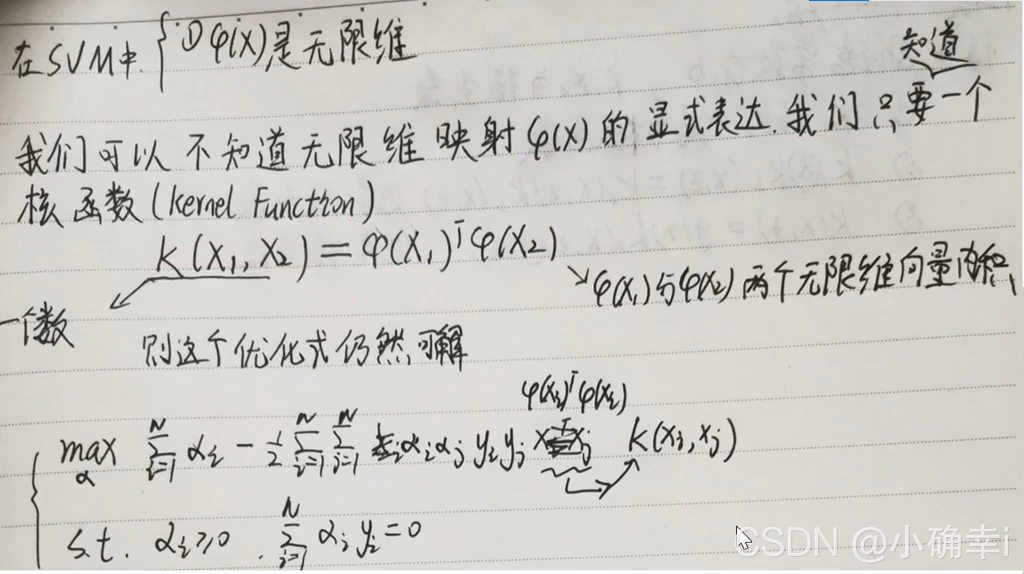 在SVM中. { ① φ(x)是无限维
知道
我们可以不知道无限维映射φ(x)的显式表达.我们只要一个
核函数(Kernel Function)
K(X₁, X₂) = φ(X₁)ᵀφ(X₂)
↘φ(x₁)与φ(x₂)两个无限维向量内积,
一个数
则这个优化式仍然可解
φ(xᵢ)ᵀφ(xᵢ)
max α ∑ᵢ₌₁ᴺ αᵢ - 1/2 ∑ᵢ₌₁ᴺ ∑ⱼ₌₁ᴺ αᵢαⱼ yᵢyⱼ K(xᵢ, xⱼ)
s.t. αᵢ≥0 . ∑ᵢ₌₁ᴺ αᵢyᵢ=0
CSDN @小确幸i